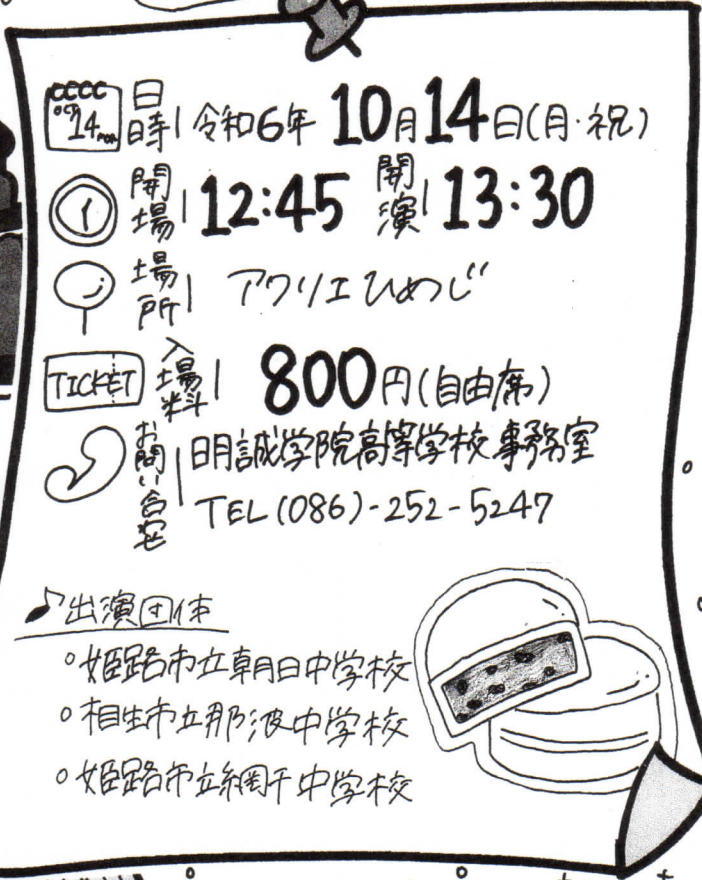 OCT 14 MON
日時 令和6年 10月14日(月・祝)
開場 12:45 開演 13:30
場所 アクリエひめじ
TICKET 入場料 800円(自由席)
お問い合わせ 明誠学院高等学校事務室
TEL(086)-252-5247
♪出演団体
○姫路市立朝日中学校
○相生市立那波中学校
○姫路市立網干中学校